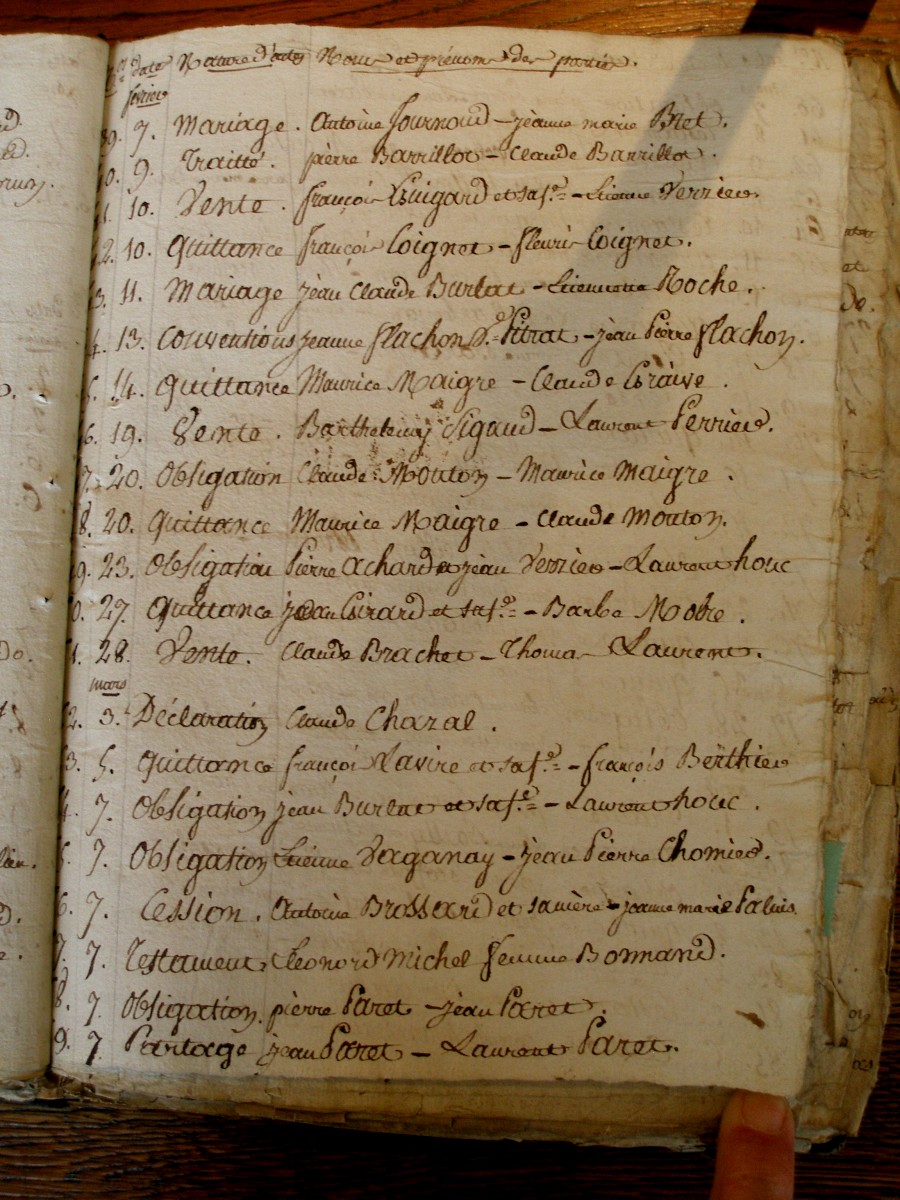 nos date Nature d'actes Noms et prénoms des parties.
fevrier
39. 7. Mariage. Antoine Journoud – jèanne marie Bret.
0. 9. Traitté. pièrre Barrillot – Claude Barrillot.
1. 10. Vente. françois Guigard et sa fe – Etienne Verrier
2. 10. Quittance françois Coignet – fleurie Coignet.
3. 11. Mariage jèan Claude Burlat – Etiennette Roche.
4. 13. Conventions jeanne flachon Ve Pitrat – jean Pièrre flachon.
5. 14. Quittance Maurice Maigre – Claude
6. 19. Vente. Barthelemy Sigaud – Laurent Perrier.
7. 20. Obligation Claude Mouton – Maurice Maigre.
8. 20. Quittance Maurice Maigre – Claude Mouton.
9. 23. Obligation Pièrre Achard et jèan Verrier – Laurent houc
0. 27. Quittance jean Girard et sa fe – Barbe
1. 28. Vente. Claude Brachet – Thomas Laurent.
mars
2. 3. Déclaration Claude Chazal.
3. 5. Quittance françois Lavire et sa fe – françois Berthier
4. 7. Obligation jean Burlat et sa fe – Laurent houc.
5. 7. Obligation Etienne Vaganay – jean Pièrre Chomier.
6. 7. Cession. Antoine Brossard et sa mère – jeanne marie Paluis
7. 7. Testament, Cleonord Michel femme Bonnand.
8. 7. Obligation. pièrre Paret – jèan Paret.
9. 7. Partage jean Paret – Laurent Paret.